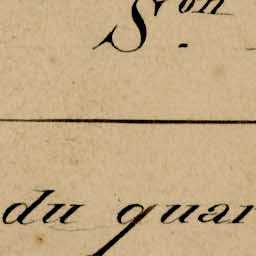 S.on
du quar